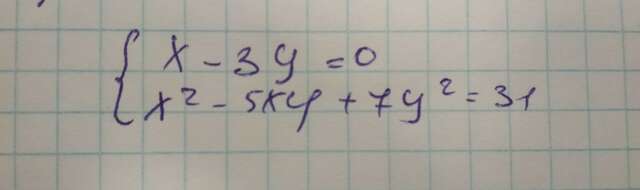 x - 3y = 0
x² - 5xy + 7y² = 31